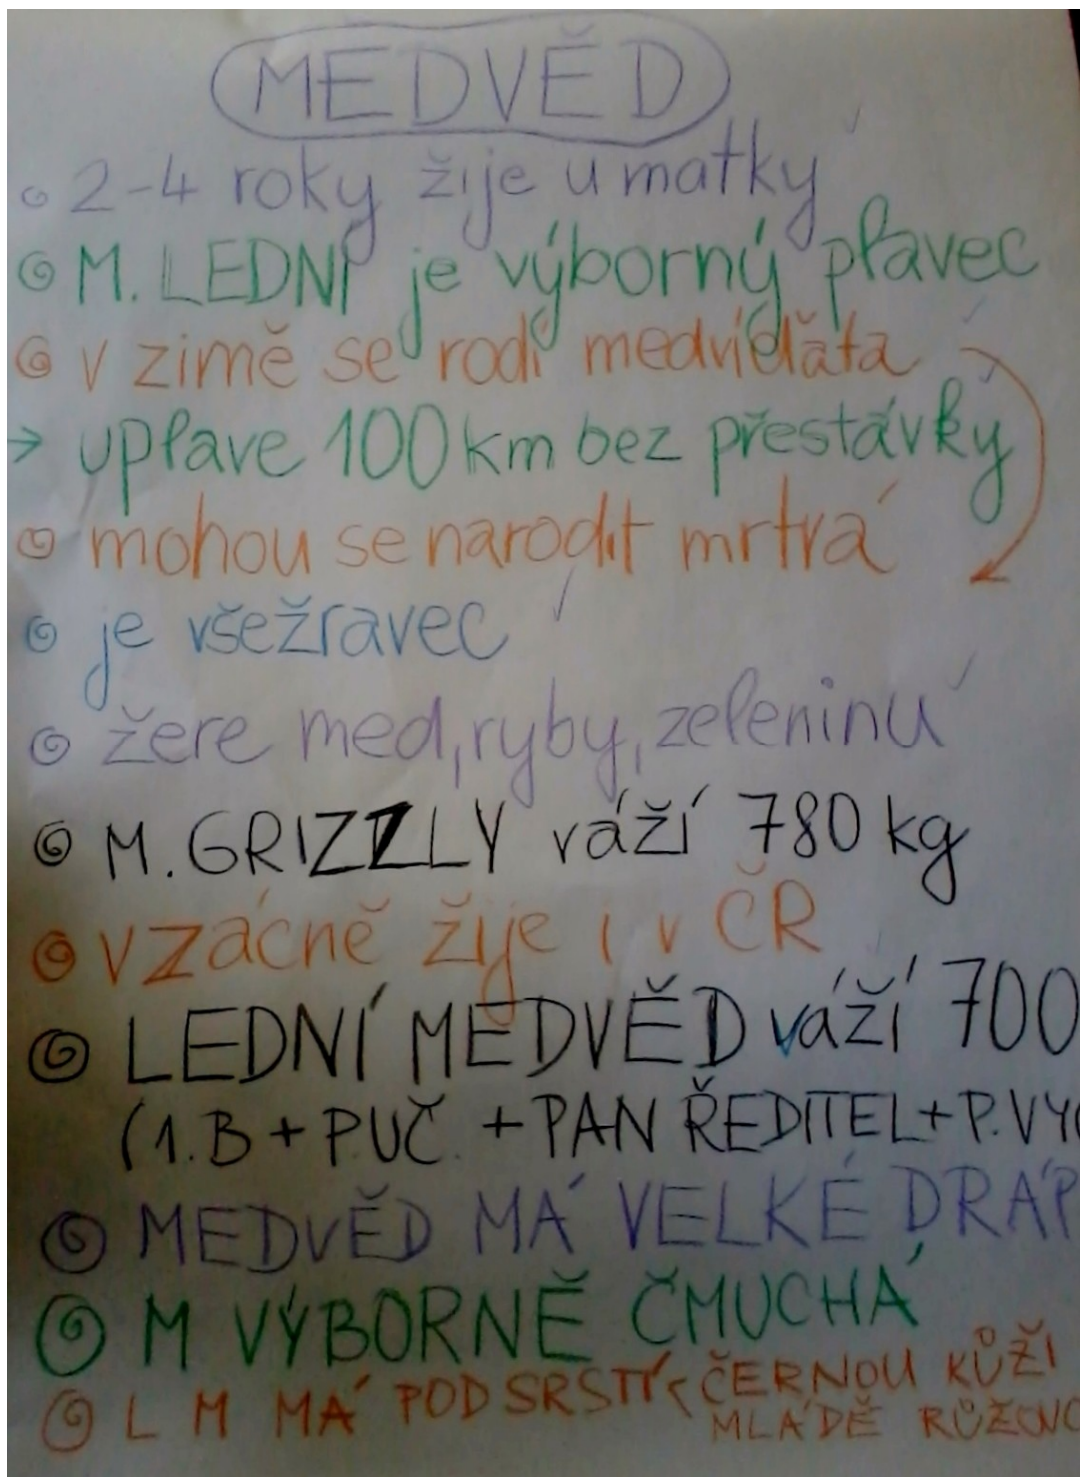 MEDVĚD
2-4 roky žije u matky
M. LEDNÍ je výborný plavec
v zimě se rodí medvíďata
→ uplave 100 km bez přestávky
mohou se narodit mrtvá
je všežravec
žere med, ryby, zeleninu
M. GRIZZLY váží 780 kg
vzácně žije i v ČR
LEDNÍ MEDVĚD váží 700
(1.B + P.UČ. + PAN ŘEDITEL + P.
MEDVĚD MÁ VELKÉ DRÁP
M VÝBORNĚ ČMUCHÁ
L M MÁ POD SRSTÍ < ČERNOU KŮŽI
MLÁDĚ